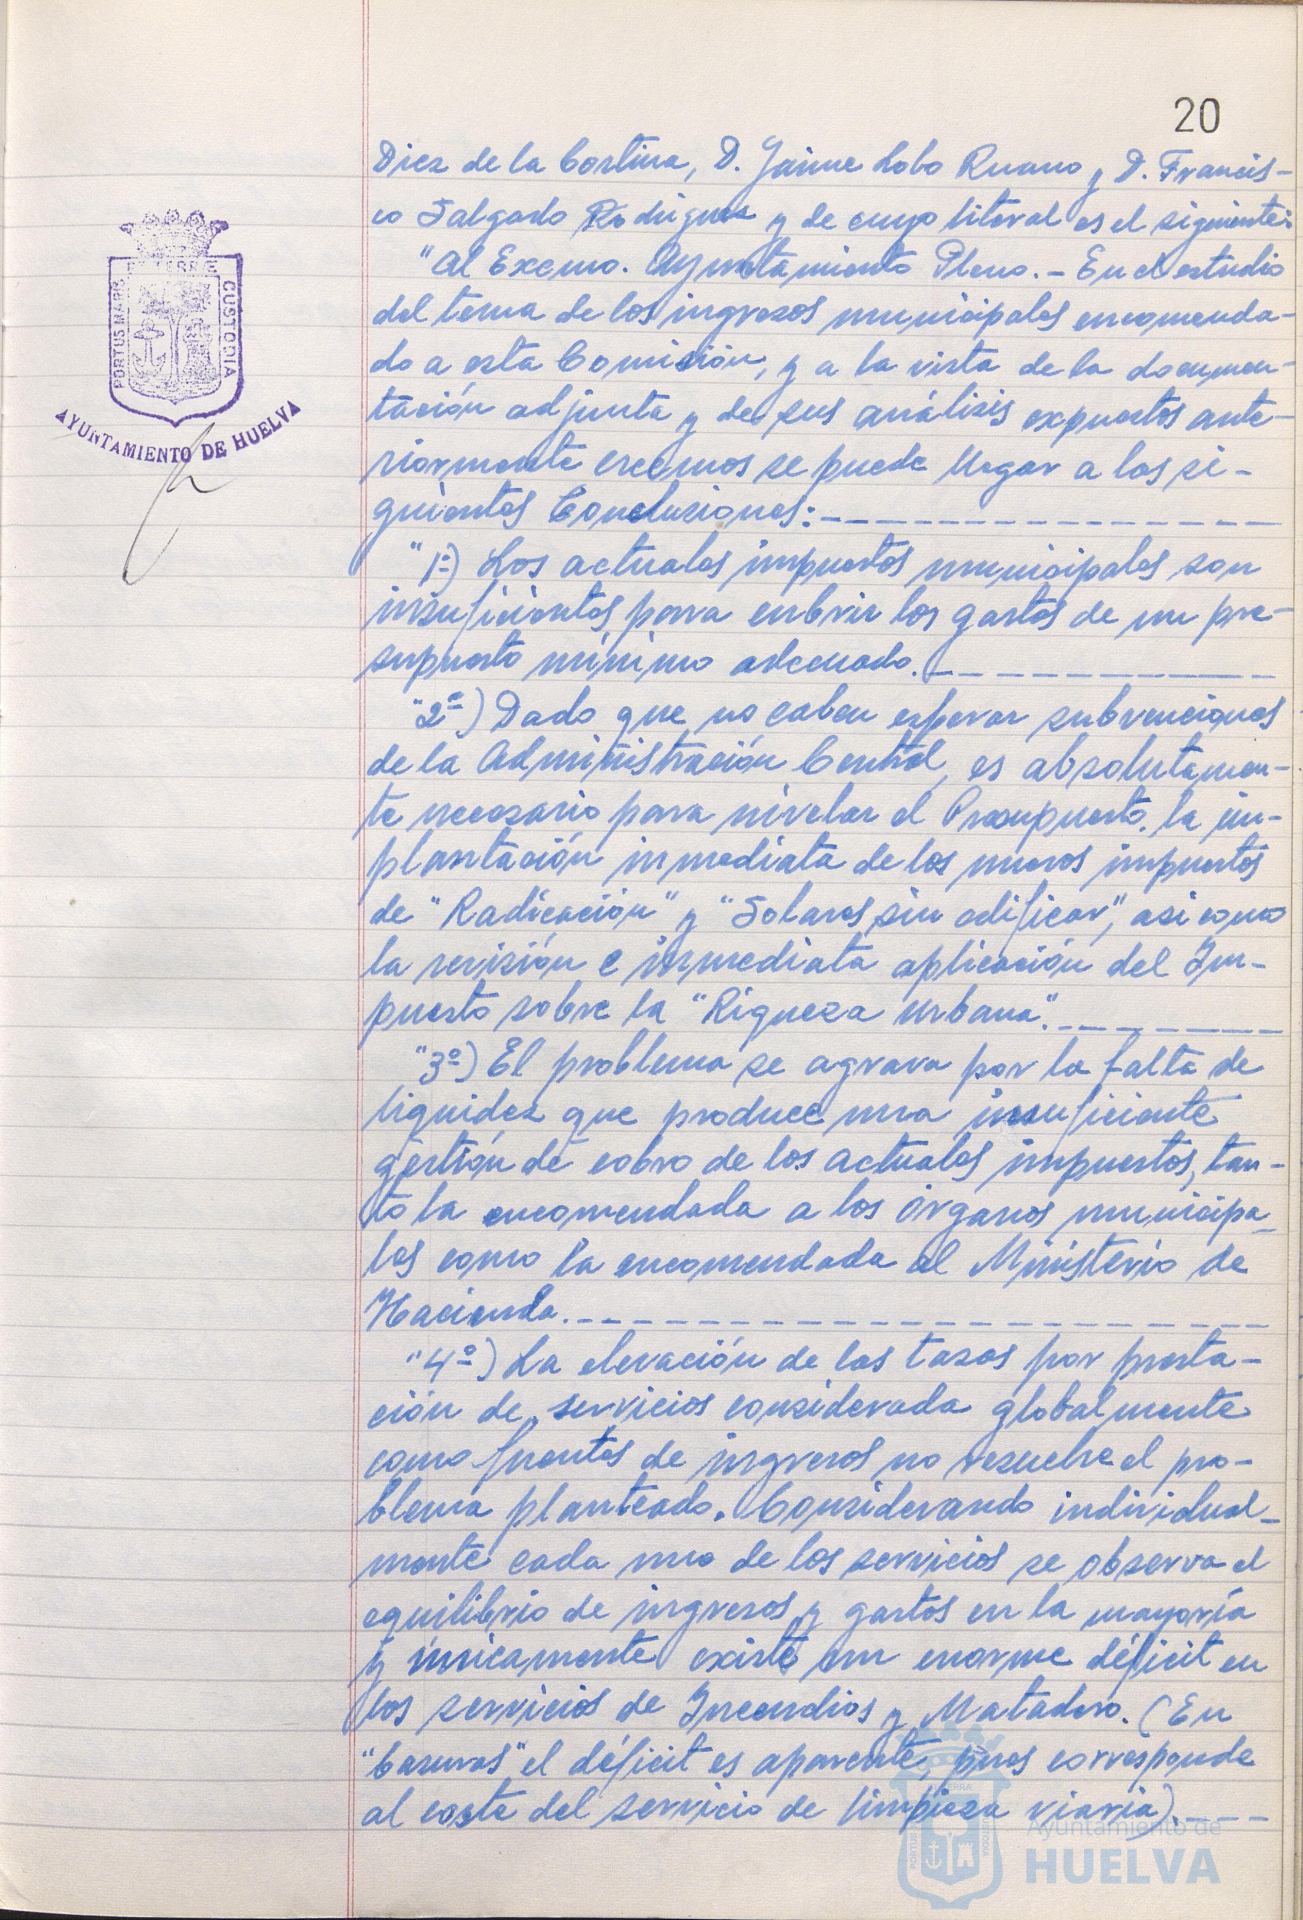 20
Diez de la Cortina, D. Jaime Lobo Ruano y D. Francis-
co Salgado Rodriguez y de cuyo literal es el siguiente:
"Al Excmo. Ayuntamiento Pleno. - En el estudio
del tema de los ingresos municipales encomenda-
do a esta Comisión, y a la vista de la documen-
tación adjunta y de sus análisis expuestos ante-
riormente creemos se puede llegar a las si-
guientes Conclusiones:
"1ª) Los actuales impuestos municipales son
insuficientes para cubrir los gastos de un pre-
supuesto mínimo adecuado.
"2ª) Dado que no caben esperar subvenciones
de la Administración Central, es absolutamen-
te necesario para nivelar el Presupuesto, la im-
plantación inmediata de los nuevos impuestos
de "Radicación" y "Solares sin edificar", asi como
la revisión e inmediata aplicación del Im-
puesto sobre la "Riqueza Urbana".
"3º) El problema se agrava por la falta de
liquidez que produce una insuficiente
gestión de cobro de los actuales impuestos, tan-
to la encomendada a los órganos municipa-
les como la encomendada al Ministerio de
Hacienda.
"4º) La elevación de las tasas por presta-
ción de servicios considerada globalmente
como fuentes de ingresos no resuelve el pro-
blema planteado. Considerando individual-
mente cada uno de los servicios se observa el
equilibrio de ingresos y gastos en la mayoría
y únicamente existe un enorme déficit en
los servicios de Incendios y Matadero. (En
"basuras" el déficit es aparente, pues corresponde
al coste del servicio de limpieza viaria).
PORTUS MARIS
ET TERRAE
CUSTODIA
AYUNTAMIENTO DE HUELVA
Ayuntamiento de
HUELVA